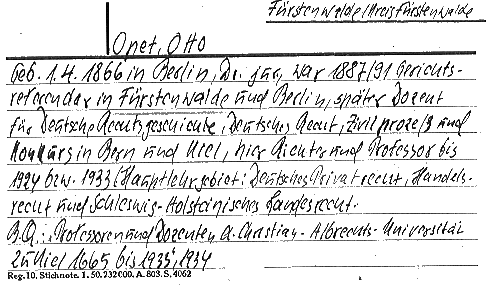 Fürstenwalde/Kreis Fürstenwalde
Opet, Otto
Geb. 1.4. 1866 in Berlin, Dr. jur, war 1887/91 Gerichts-
referendar in Fürstenwalde und Berlin, später Dozent
für Deutsche Rechtsgeschichte, Deutsches Recht, Zivilprozeß und
Konkurs in Bern und Kiel, hier Richter und Professor bis
1924 bzw. 1933 (Hauptlehrgebiet: Deutsches Privatrecht, Handels-
recht und Schleswig-Holsteinisches Landesrecht.
B.Q.: Professoren und Dozenten d. Christian-Albrechts-Universität
zu Kiel 1665 bis 1933, 1934
Reg. 10. Stichnote. 1. 50. 232000. A. 803. S. 4062